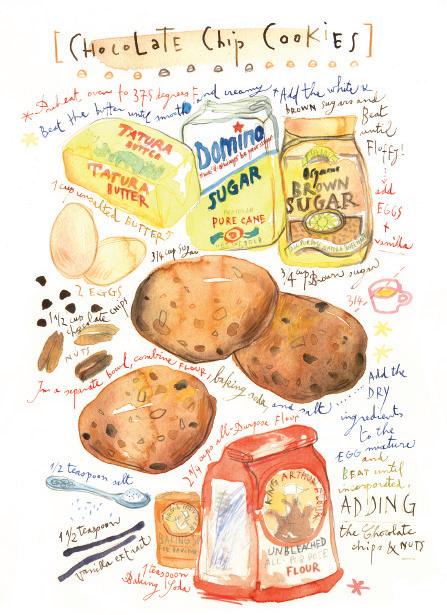 [CHOCOLATE Chip COOKIES]
Preheat oven to 375 degrees F
Beat the butter until smooth and creamy
Add the white &
BROWN sugars and
Beat
until
Floffy!
add
EGGS
+
vanilla
TATURA
BUTTER
TATURA
BUTTER
1 cup unsalted BUTTER
Domino
SUGAR
PREMIUM
PURE CANE
3/4 cup sugar
Organic
BROWN
SUGAR
3/4 cup Brown sugar
2 EGGS
1 1/2 cup
chocolate CHIPS
NUTS
3/4
In a separate bowl, combine FLOUR, baking soda, and salt
Add the
DRY
ingredients
to the
EGG mixture
and
BEAT until
incorporated.
ADDING
the Chocolate
chips & NUTS
2 1/4 cups all-Purpose Flour
1/2 teaspoon salt
1 1/2 teaspoon
vanilla extract
BAKING
1 teaspoon
Baking Soda
KING ARTHUR FLOUR
UNBLEACHED
ALL-PURPOSE
FLOUR